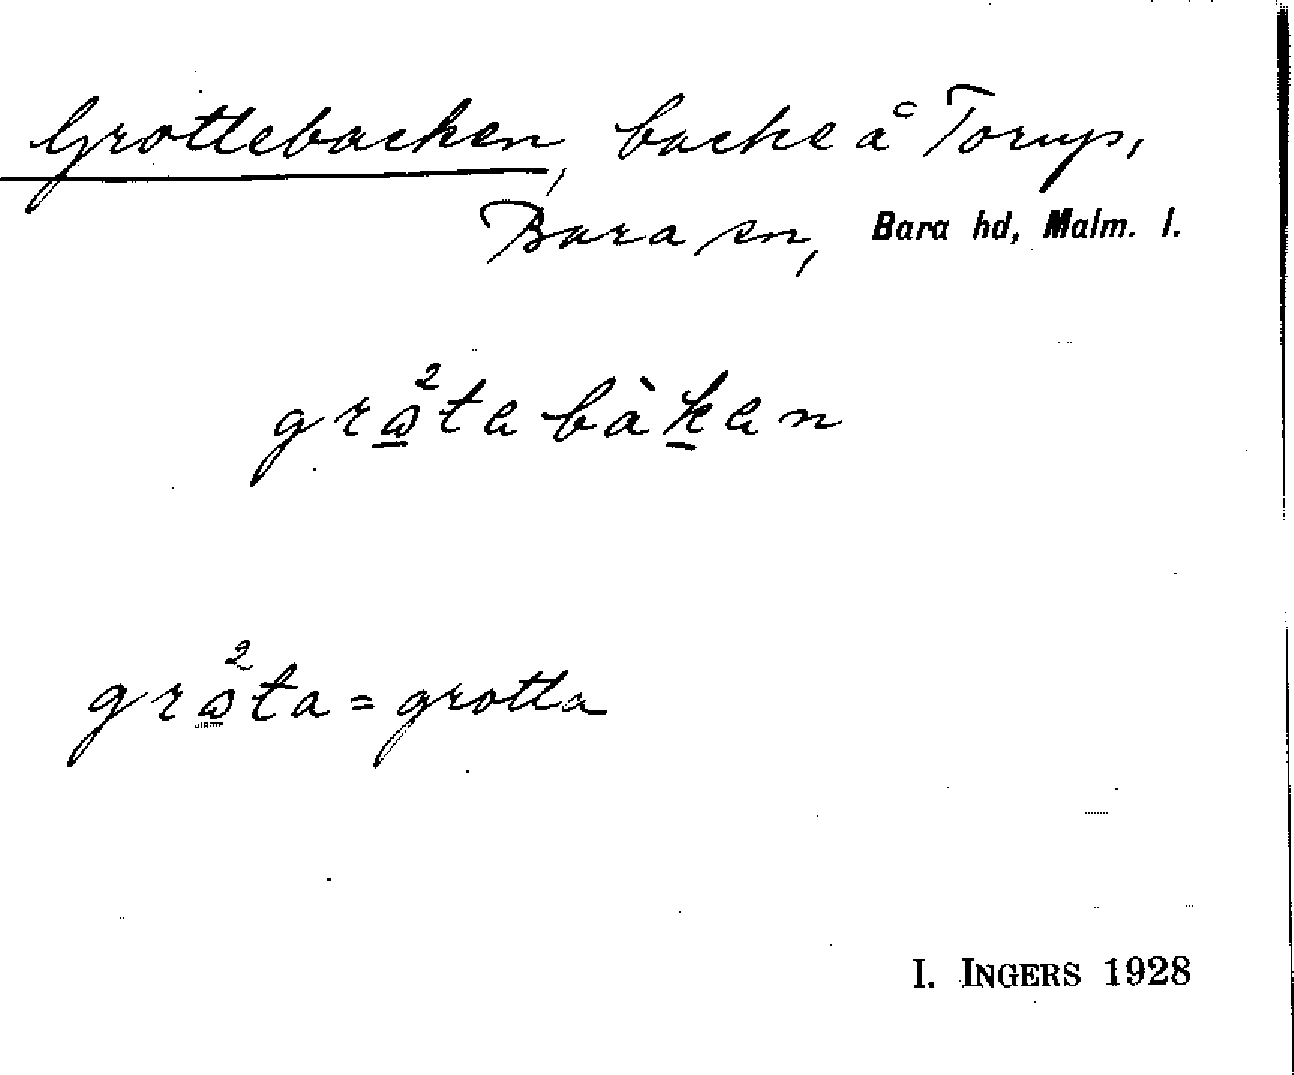 Grottebacken, backe å Torup,
Bara sn, Bara hd, Malm. l.
grω²ta bàkan
grω²ta = grotta
I. INGERS 1928